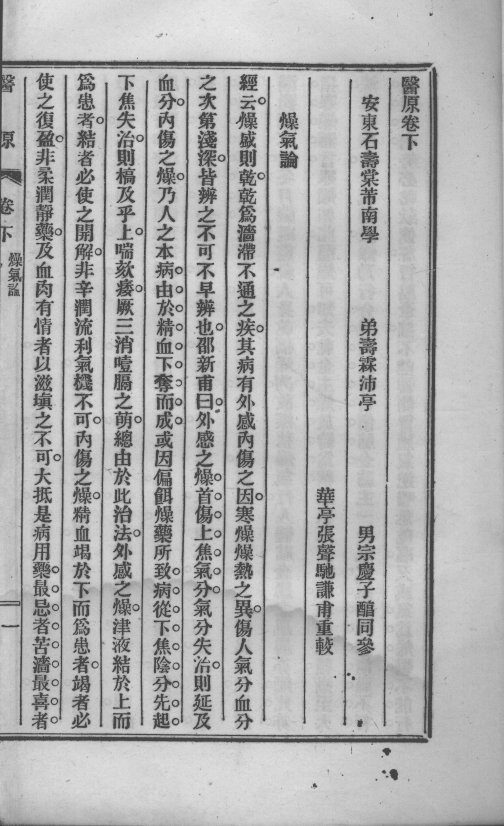 醫原卷下
安東石壽棠芾南學 弟壽霖沛亭 男宗慶子醕同參
華亭張聲馳謙甫重較
燥氣論
經云燥盛則乾乾爲濇滯不通之疾其病有外感內傷之因寒燥燥熱之異傷人氣分血分
之次第淺深皆辨之不可不早辨也邵新甫曰外感之燥首傷上焦氣分氣分失治則延及
血分內傷之燥乃人之本病由於精血下奪而成或因偏餌燥藥所致病從下焦陰分先起
下焦失治則槁及乎上喘欬痿厥三消噎膈之萌總由於此治法外感之燥津液結於上而
爲患者結者必使之開解非辛潤流利氣機不可內傷之燥精血竭於下而爲患者竭者必
使之復盈非柔潤靜藥及血肉有情者以滋塡之不可大抵是病用藥最忌者苦濇最喜者
醫原 卷下 燥氣論 一